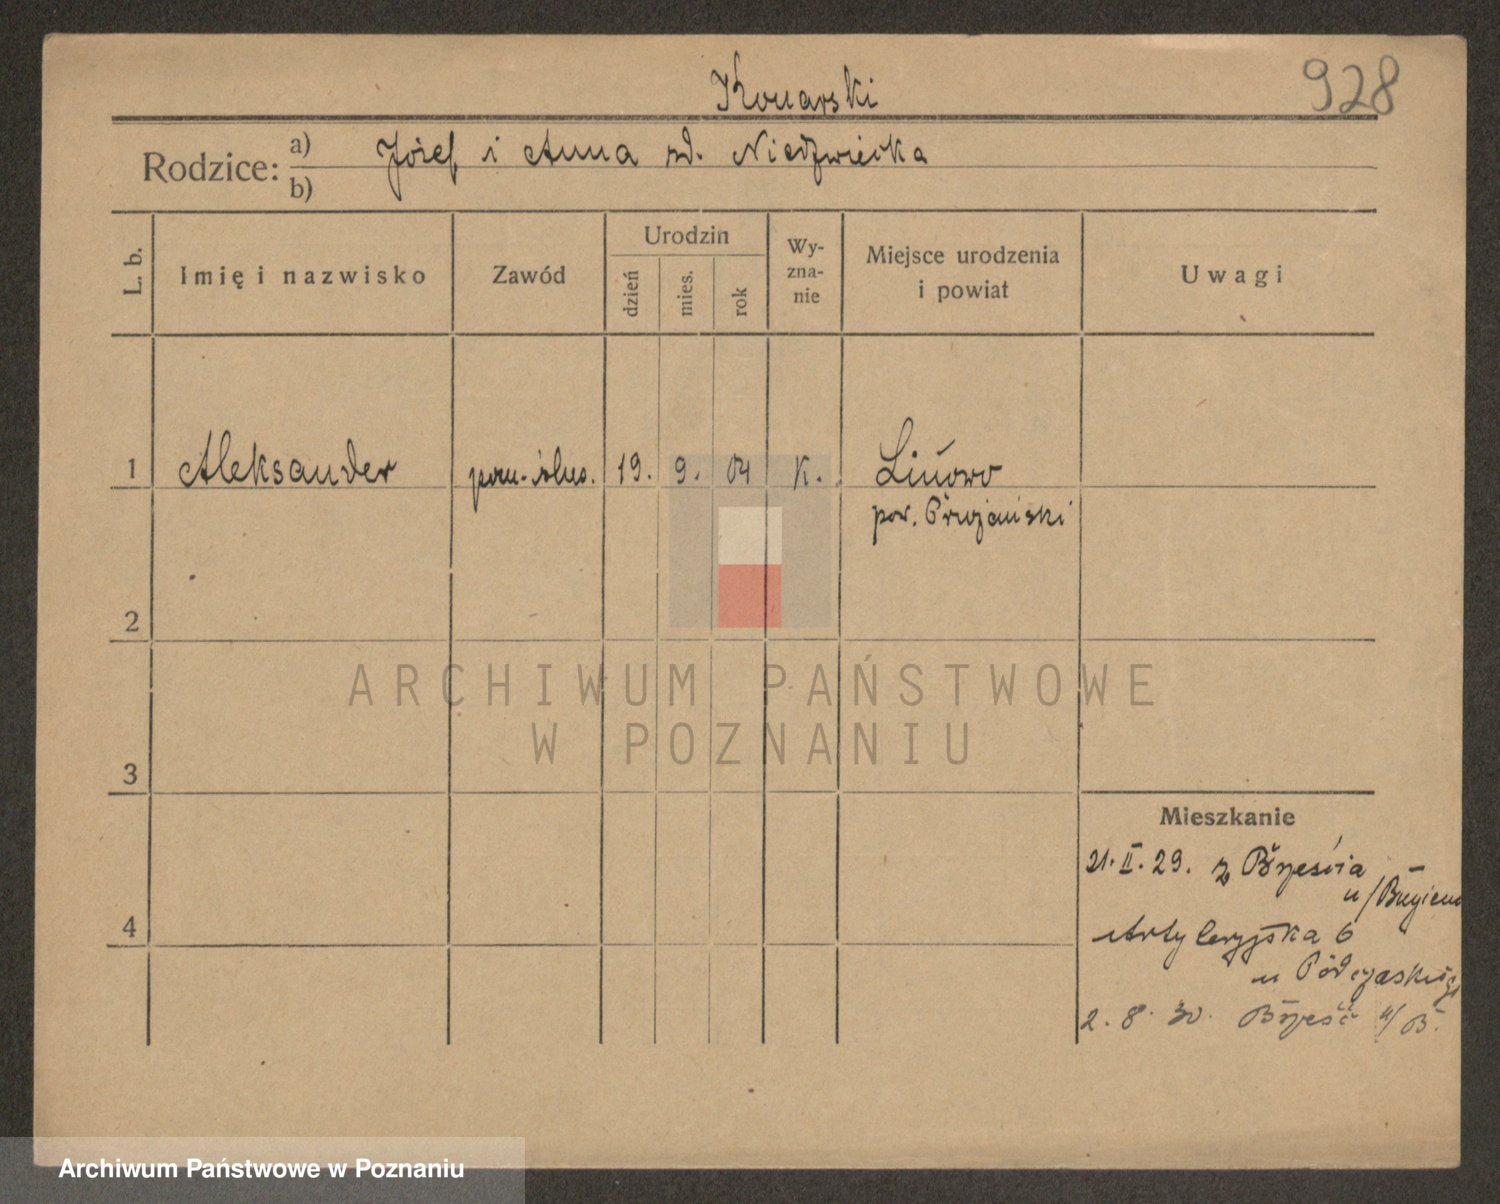 Konarski
928
Rodzice: a) Józef i Anna zd. Niedzwiecka
b)
L. b.
Imię i nazwisko
Zawód
Urodzin
dzień
mies.
rok
Wy-
zna-
nie
Miejsce urodzenia
i powiat
Uwagi
1 Aleksander pom. ślus. 19. 9. 04 K. Linowo
pow. Prużański
2
ARCHIWUM PAŃSTWOWE
W POZNANIU
3
Mieszkanie
21. II. 29. z Brześcia
n/Bugiem
4
Artyleryjska 6
u
2. 8. 30. Brześć n/B.
Archiwum Państwowe w Poznaniu